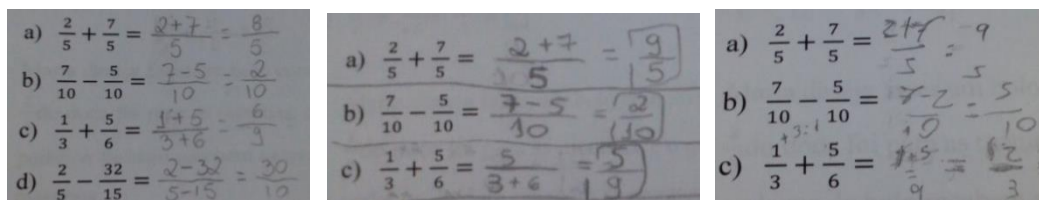 a) 2/5 + 7/5 = 2+7/5 = 8/5
b) 7/10 − 5/10 = 7-5/10 = 2/10
c) 1/3 + 5/6 = 1+5/3+6 = 6/9
d) 2/5 − 32/15 = 2-32/5-15 = 30/10
a) 2/5 + 7/5 = 2+7/5 = 9/5
b) 7/10 − 5/10 = 7-5/10 = 2/10
c) 1/3 + 5/6 = 5/3+6 = 5/9
a) 2/5 + 7/5 = 2+7/5 = 9/5
b) 7/10 − 5/10 = 7-2/10 = 5/10
c) 1/3 + 5/6 = /9 = /3